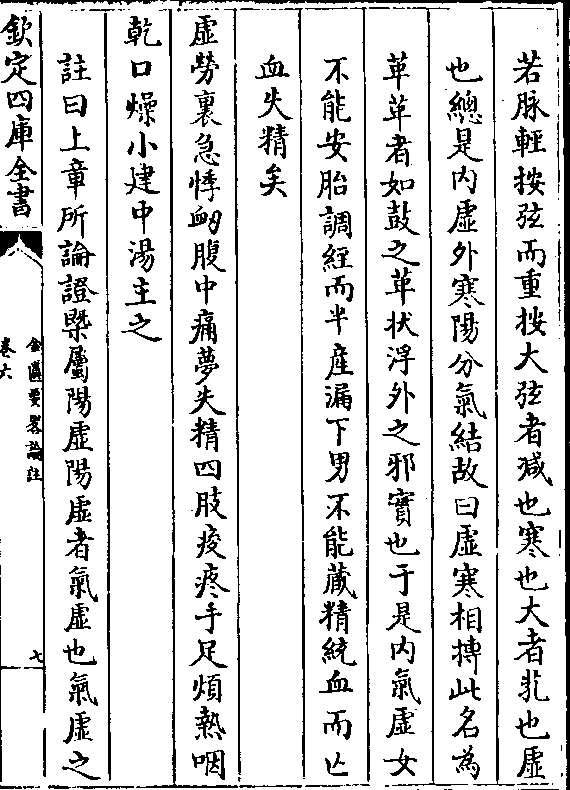 若脉輕按弦而重按大弦者減也寒也大者芤也虚
也總是内虚外寒陽分氣結故曰虚寒相摶此名為
革革者如鼓之革状浮外之邪實也于是内氣虚女
不能安胎調經而半産漏下男不能蔵精統血而亡
血失精矣
虚勞裏急悸衂腹中痛夢失精四肢痠疼手足煩熱咽
乾口燥小建中湯主之
註曰上章所論證槩屬陽虚陽虚者氣虚也氣虚之
欽定四庫全書
金匱要畧論註
卷六
七